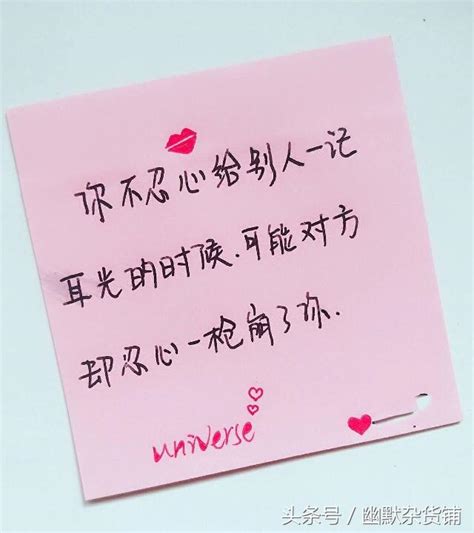 你不忍心给别人一记
耳光的时候.可能对方
却忍心一枪崩了你.
universe
头条号／幽默杂货铺